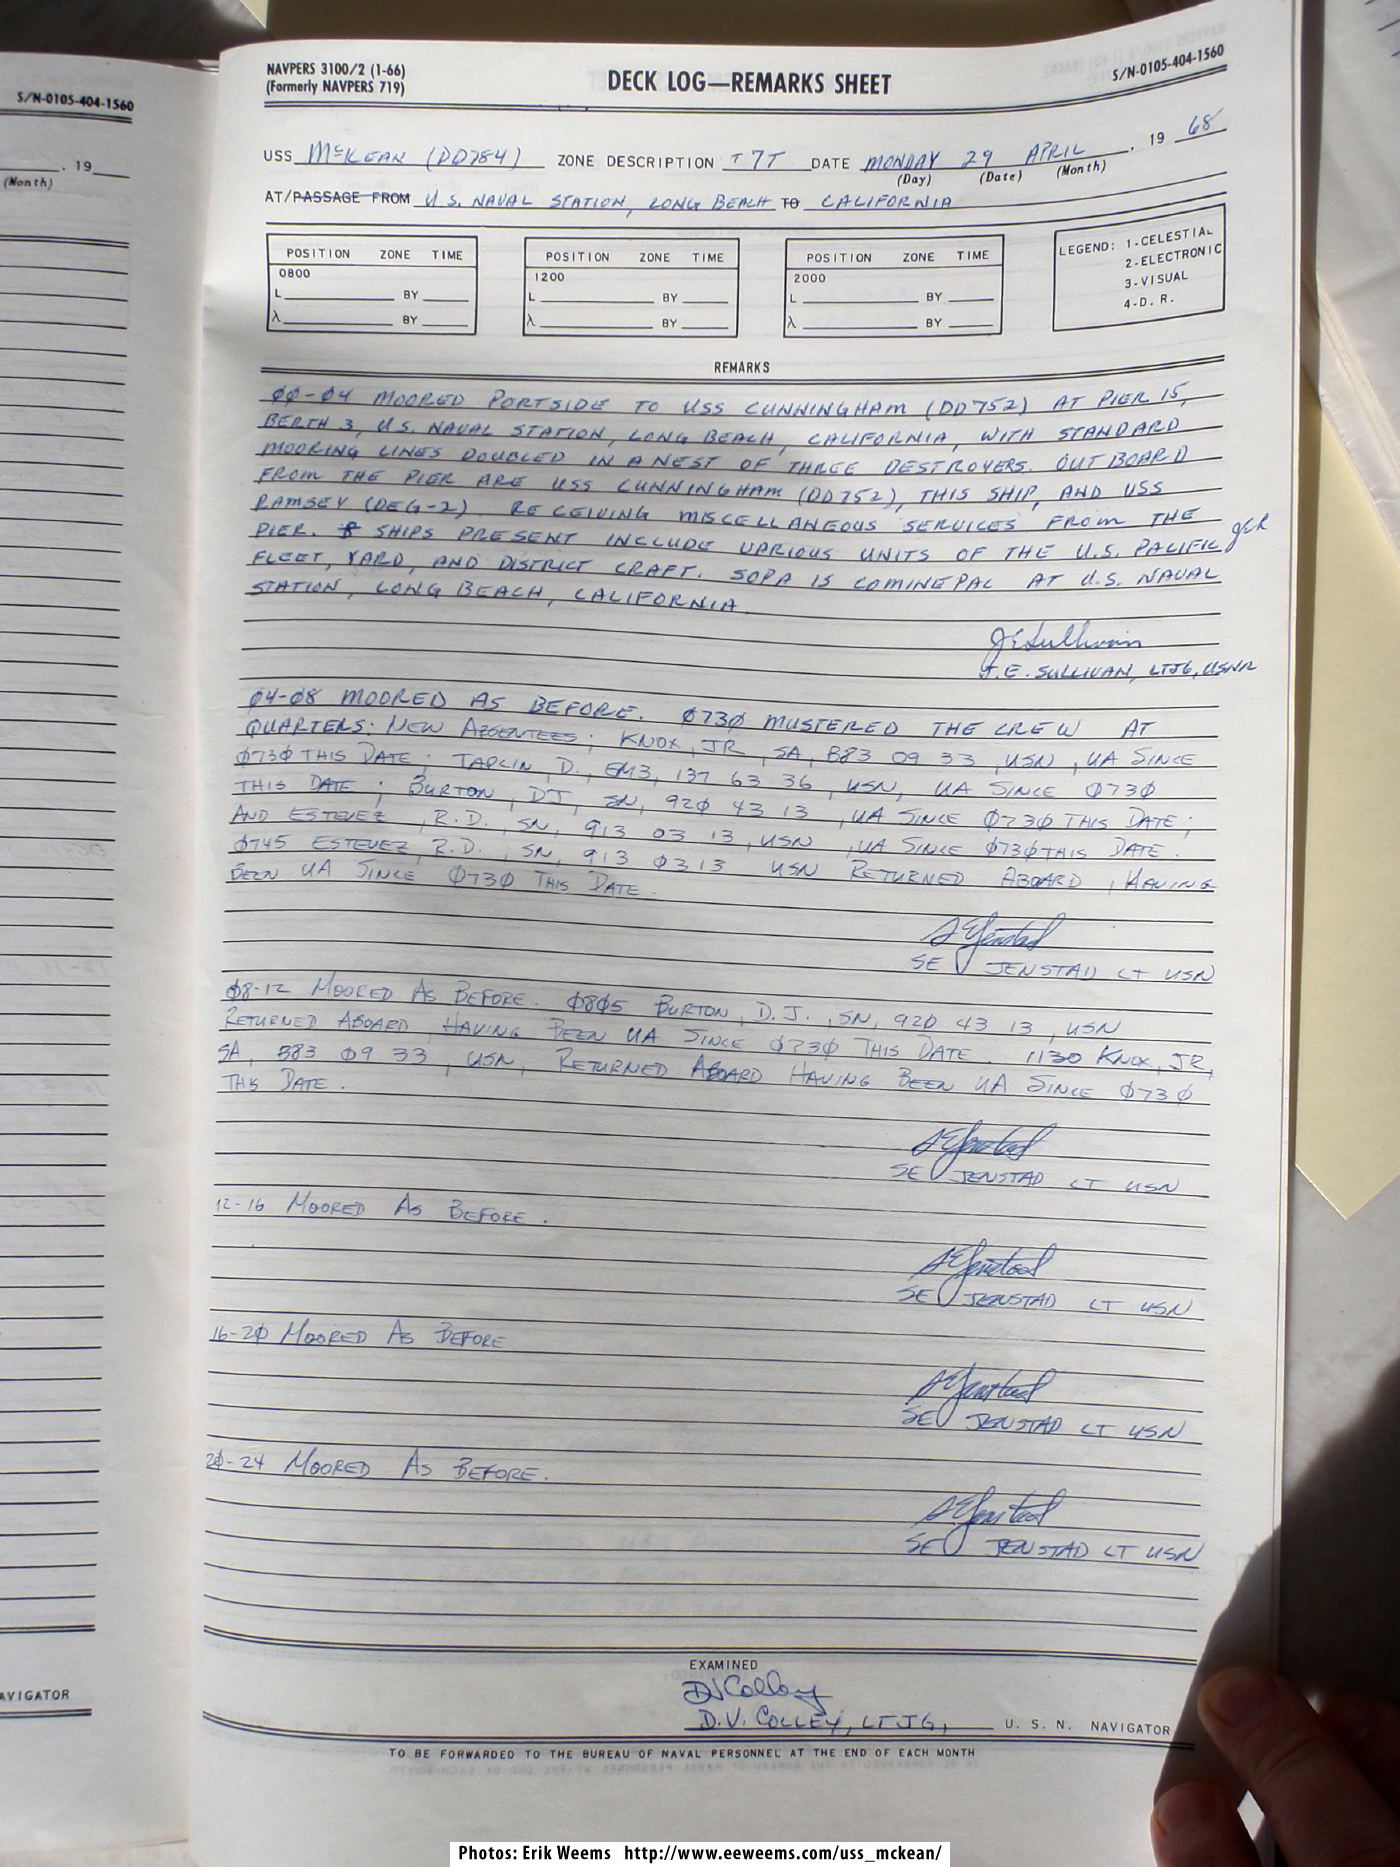 S/N-0105-404-1560
. 19
(Month)
AVIGATOR
NAVPERS 3100/2 (1-66)
(Formerly NAVPERS 719)
DECK LOG—REMARKS SHEET
S/N-0105-404-1560
USS McKEAN (DD784) ZONE DESCRIPTION +7T DATE MONDAY 29 APRIL, 19 68
(Day) (Date) (Month)
AT/PASSAGE FROM U.S. NAVAL STATION, LONG BEACH TO CALIFORNIA
POSITION ZONE TIME
0800
L BY
λ BY
POSITION ZONE TIME
1200
L BY
λ BY
POSITION ZONE TIME
2000
L BY
λ BY
LEGEND: 1-CELESTIAL
2-ELECTRONIC
3-VISUAL
4-D. R.
REMARKS
00-04 MOORED PORTSIDE TO USS CUNNINGHAM (DD752) AT PIER 15,
BERTH 3, U.S. NAVAL STATION, LONG BEACH, CALIFORNIA, WITH STANDARD
MOORING LINES DOUBLED IN A NEST OF THREE DESTROYERS. OUTBOARD
FROM THE PIER ARE USS CUNNINGHAM (DD752), THIS SHIP, AND USS
RAMSEY (DEG-2). RECEIVING MISCELLANEOUS SERVICES FROM THE
PIER. SHIPS PRESENT INCLUDE VARIOUS UNITS OF THE U.S. PACIFIC
FLEET, YARD, AND DISTRICT CRAFT. SOPA IS COMINEPAC AT U.S. NAVAL
STATION, LONG BEACH, CALIFORNIA.
JESullivan
J.E. SULLIVAN, LTJG, USNR
04-08 MOORED AS BEFORE. 0730 MUSTERED THE CREW AT
QUARTERS: NEW ABSENTEES; KNOX, JR, SA, B83 09 33, USN, UA SINCE
0730 THIS DATE; TAPLIN, D., EM3, 137 63 36, USN, UA SINCE 0730
THIS DATE; BURTON, DJ, SN, 920 43 13, UA SINCE 0730 THIS DATE;
AND ESTEVEZ, R.D., SN, 913 03 13, USN, UA SINCE 0730 THIS DATE.
0745 ESTEVEZ, R.D., SN, 913 0313 USN RETURNED ABOARD, HAVING
BEEN UA SINCE 0730 THIS DATE.
SEJenstad
SE JENSTAD LT USN
08-12 MOORED AS BEFORE. 0805 BURTON, D.J., SN, 920 43 13, USN
RETURNED ABOARD HAVING BEEN UA SINCE 0730 THIS DATE. 1130 KNOX, JR,
SA, B83 09 33, USN, RETURNED ABOARD HAVING BEEN UA SINCE 0730
THIS DATE.
SEJenstad
SE JENSTAD LT USN
12-16 MOORED AS BEFORE.
SEJenstad
SE JENSTAD LT USN
16-20 MOORED AS BEFORE
SEJenstad
SE JENSTAD LT USN
20-24 MOORED AS BEFORE.
SEJenstad
SE JENSTAD LT USN
EXAMINED
DVColley
D.V. COLLEY, LTJG, U. S. N. NAVIGATOR
TO BE FORWARDED TO THE BUREAU OF NAVAL PERSONNEL AT THE END OF EACH MONTH
Photos: Erik Weems http://www.eeweems.com/uss_mckean/